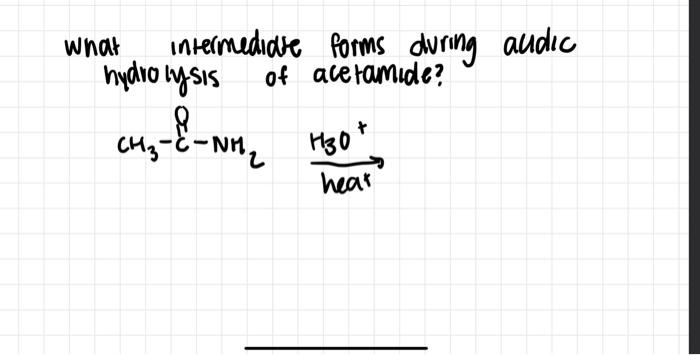 What intermediate forms during acidic
hydrolysis of acetamide?
O
CH3-C-NH2 H3O+
heat